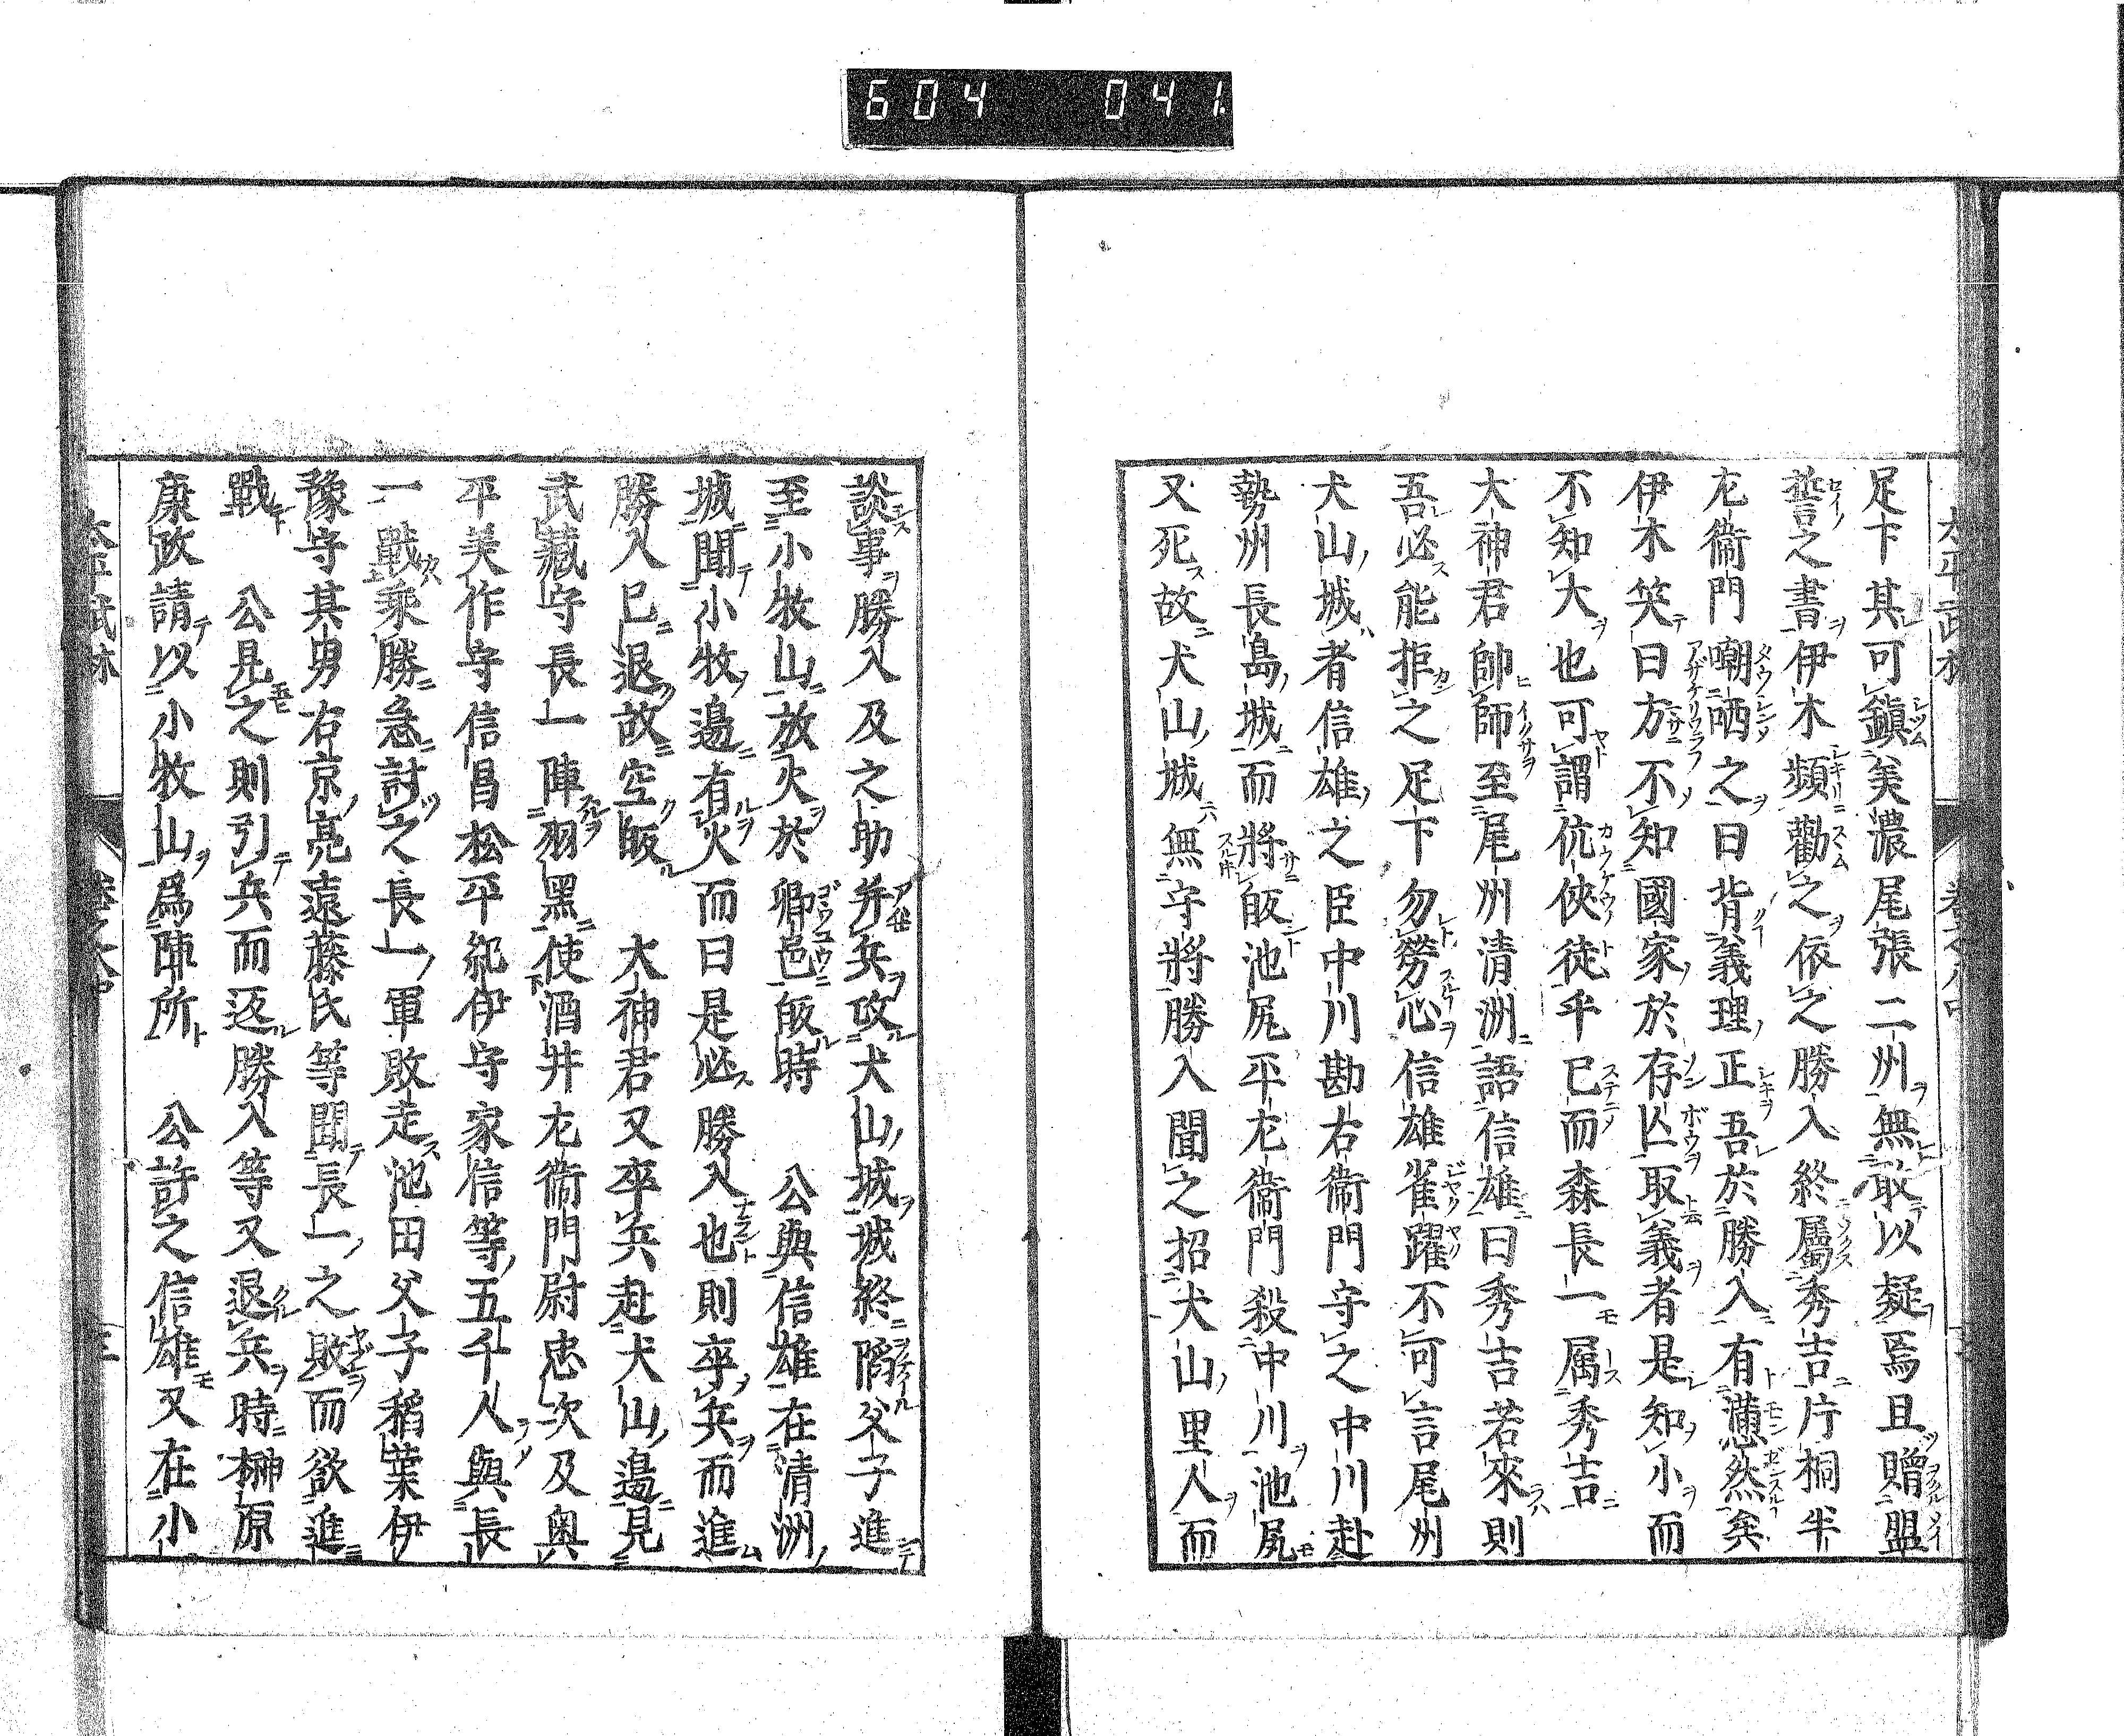 604 041.
足下其可鎮美濃尾張二州無敢以疑焉且贈盟
誓之書伊木頻勸之依之勝入終屬秀吉片桐半
左衞門嘲哂之曰背義理正吾於勝入有懣然矣
伊木笑曰方不知國家於存亡取義者是知小而
不知大也可謂伉俠徒乎已而森長一属秀吉
大神君帥師至尾州清洲語信雄曰秀吉若來則
吾必能拒之足下勿勞心信雄雀躍不可言尾州
犬山城者信雄之臣中川勘右衞門守之中川赴
勢州長島城而將皈池尻平左衞門殺中川池尻
又死故犬山城無守將勝入聞之招犬山里人而
談事勝入及之助并兵攻犬山城城終陷父子進
至小牧山放火於鄕邑皈時 公與信雄在清洲
城聞小牧邊有火而曰是必勝入也則卒兵而進
勝入已退故空皈 大神君又卒兵赴犬山邊見
武藏守長一陣羽黑使酒井左衞門尉忠次及奥
平美作守信昌松平紀伊守家信等五千人與長
一戰乘勝急討之長一軍敗走池田父子稻葉伊
豫守其男右京亮遠藤氏等聞長一之敗而欲進
戰 公見之則引兵而返勝入等又退兵時榊原
康政請以小牧山爲陣所 公許之信雄又在小